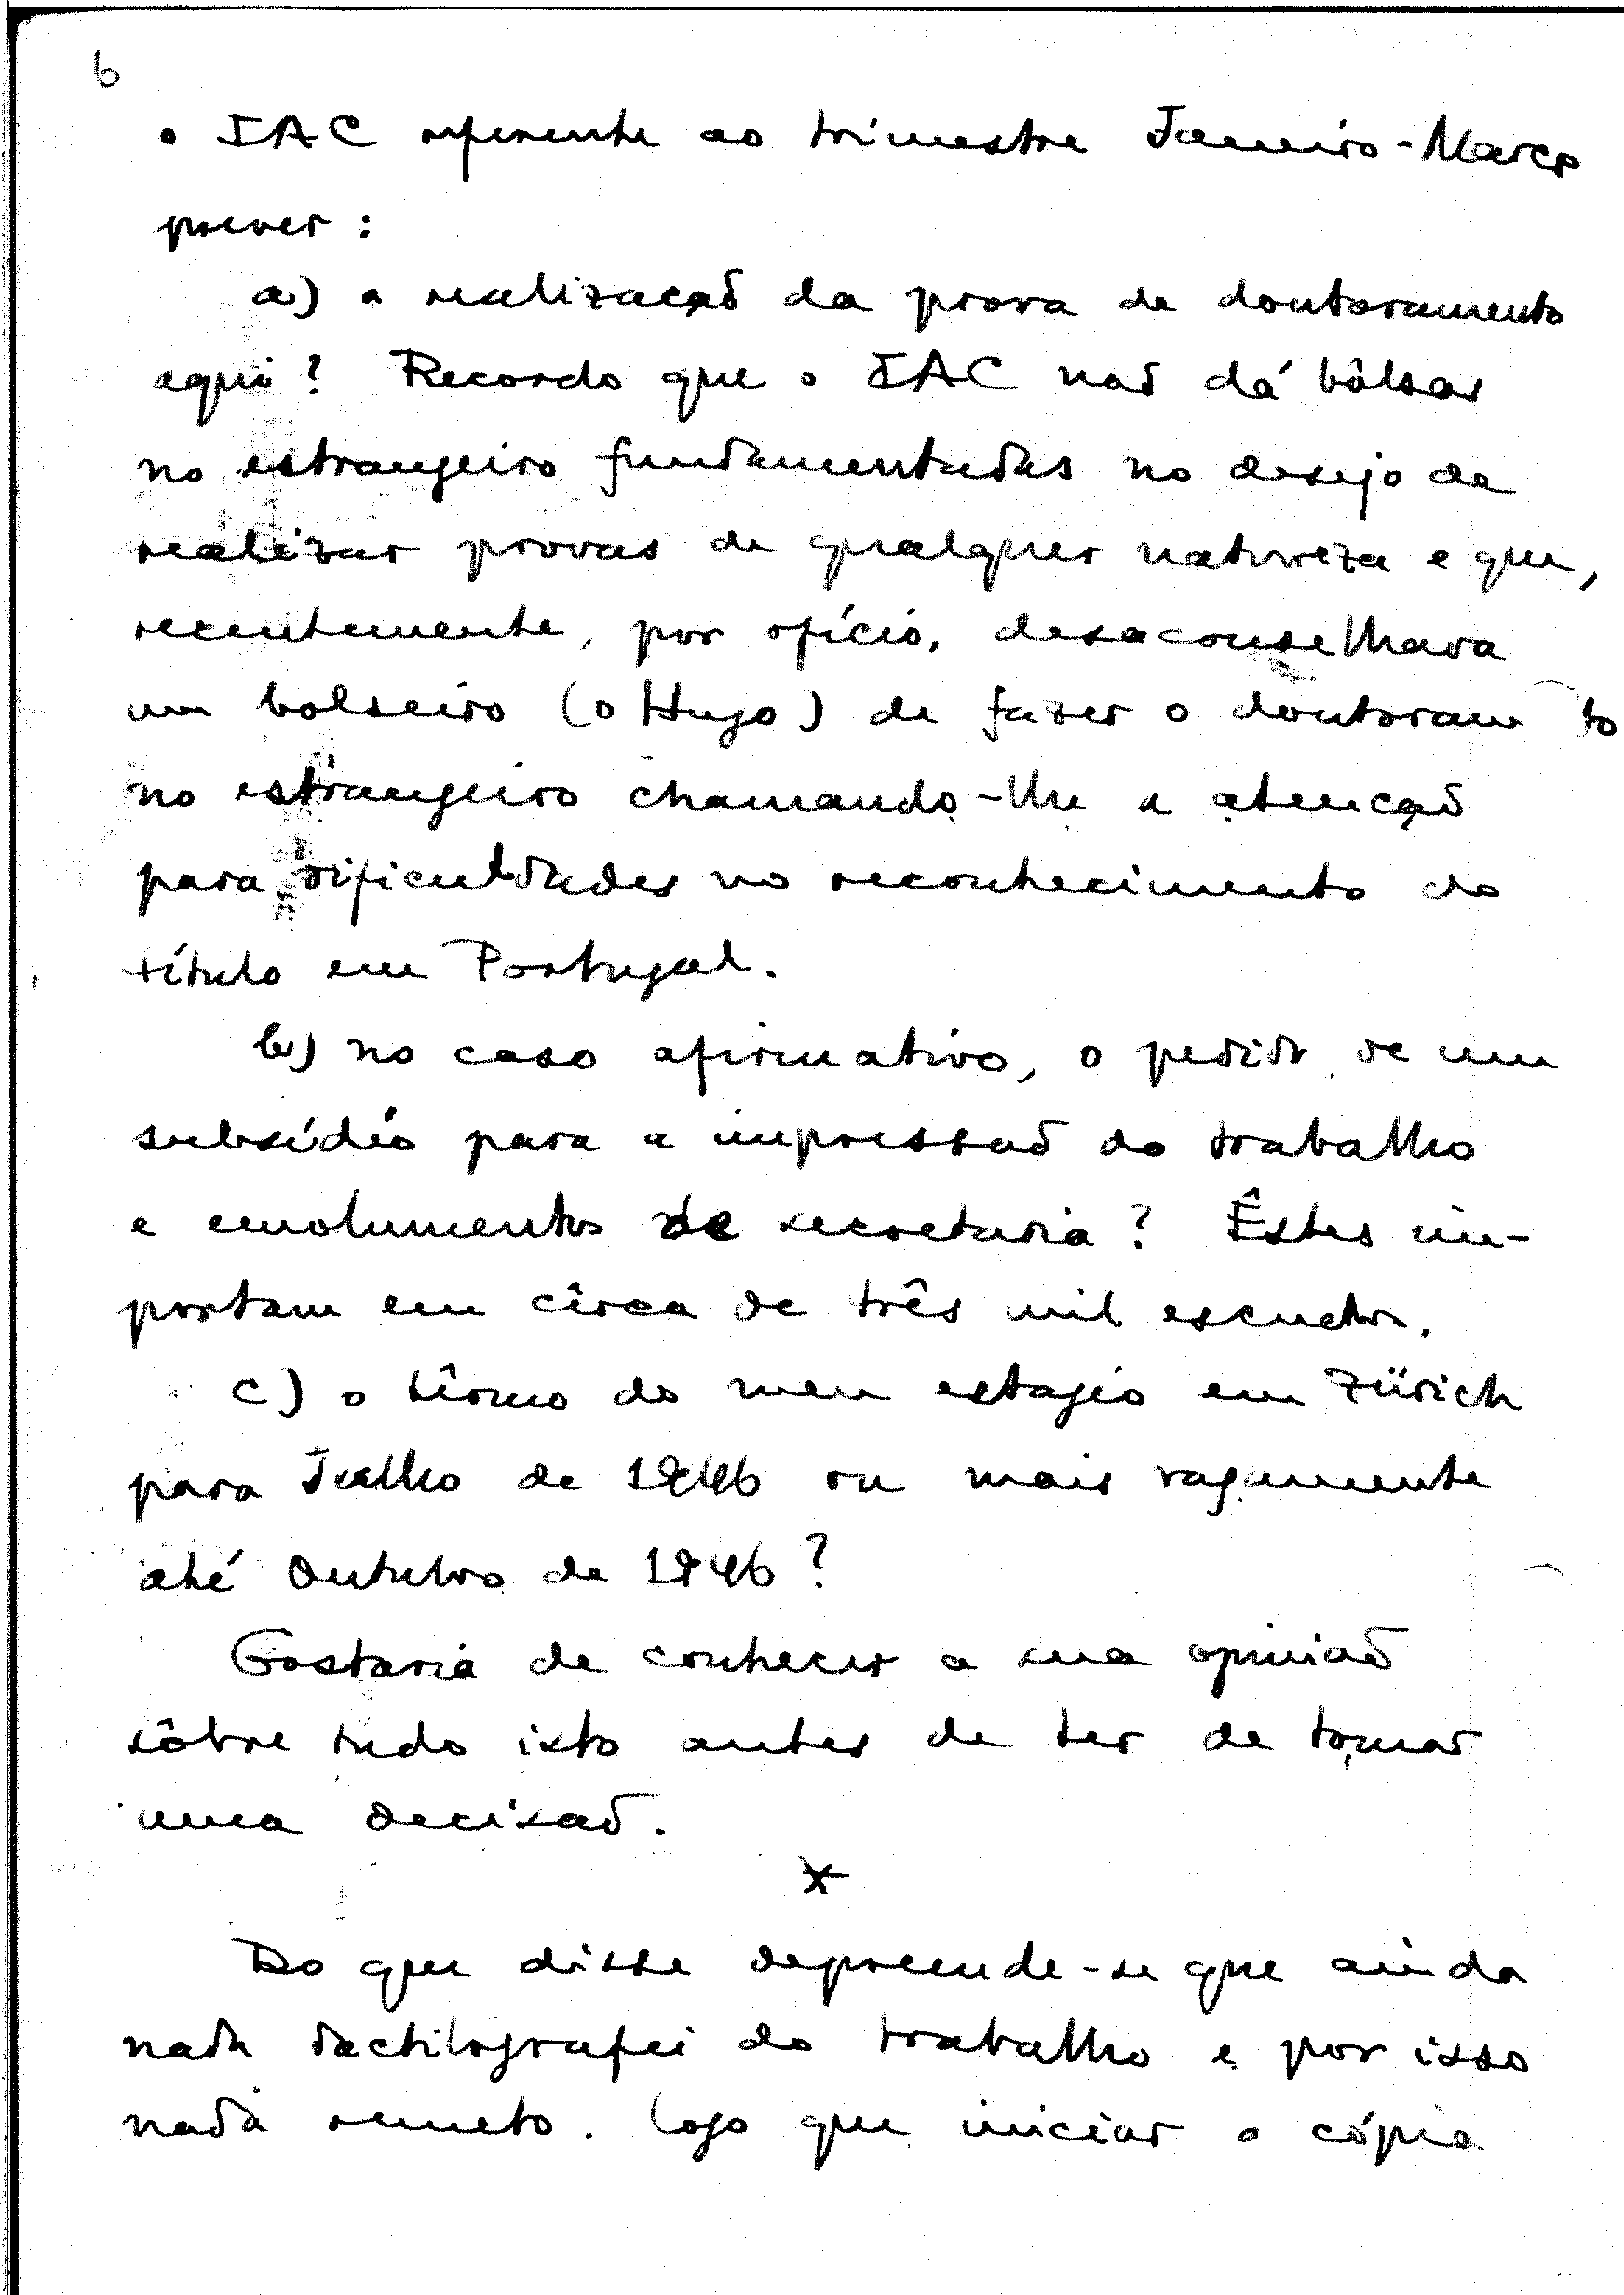 6
o IAC referente ao trimestre Janeiro-Março
prever:
a) a realização da prova de doutoramento
aqui? Recordo que o IAC não dá bôlsas
no estrangeiro fundamentadas no desejo de
realizar provas de qualquer natureza e que,
recentemente, por ofício, desaconselhava
um bolseiro (o Hugo) de fazer o doutoramto
no estrangeiro chamando-lhe a atenção
para dificuldades no reconhecimento do
título em Portugal.
b) no caso afirmativo, o pedido de um
subsídio para a impressão do trabalho
e emolumentos de secretaria? Êstes im-
portam em cêrca de três mil escudos.
c) o têrmo do meu estagio em Zürich
para Julho de 1946 ou mais vagamente
até Outubro de 1946?
Gostaria de conhecer a sua opinião
sôbre tudo isto antes de ter de tomar
uma decisão.
*
Do que disse depreende-se que ainda
nada dactilografei do trabalho e por isso
nada remeto. Logo que iniciar a cópia